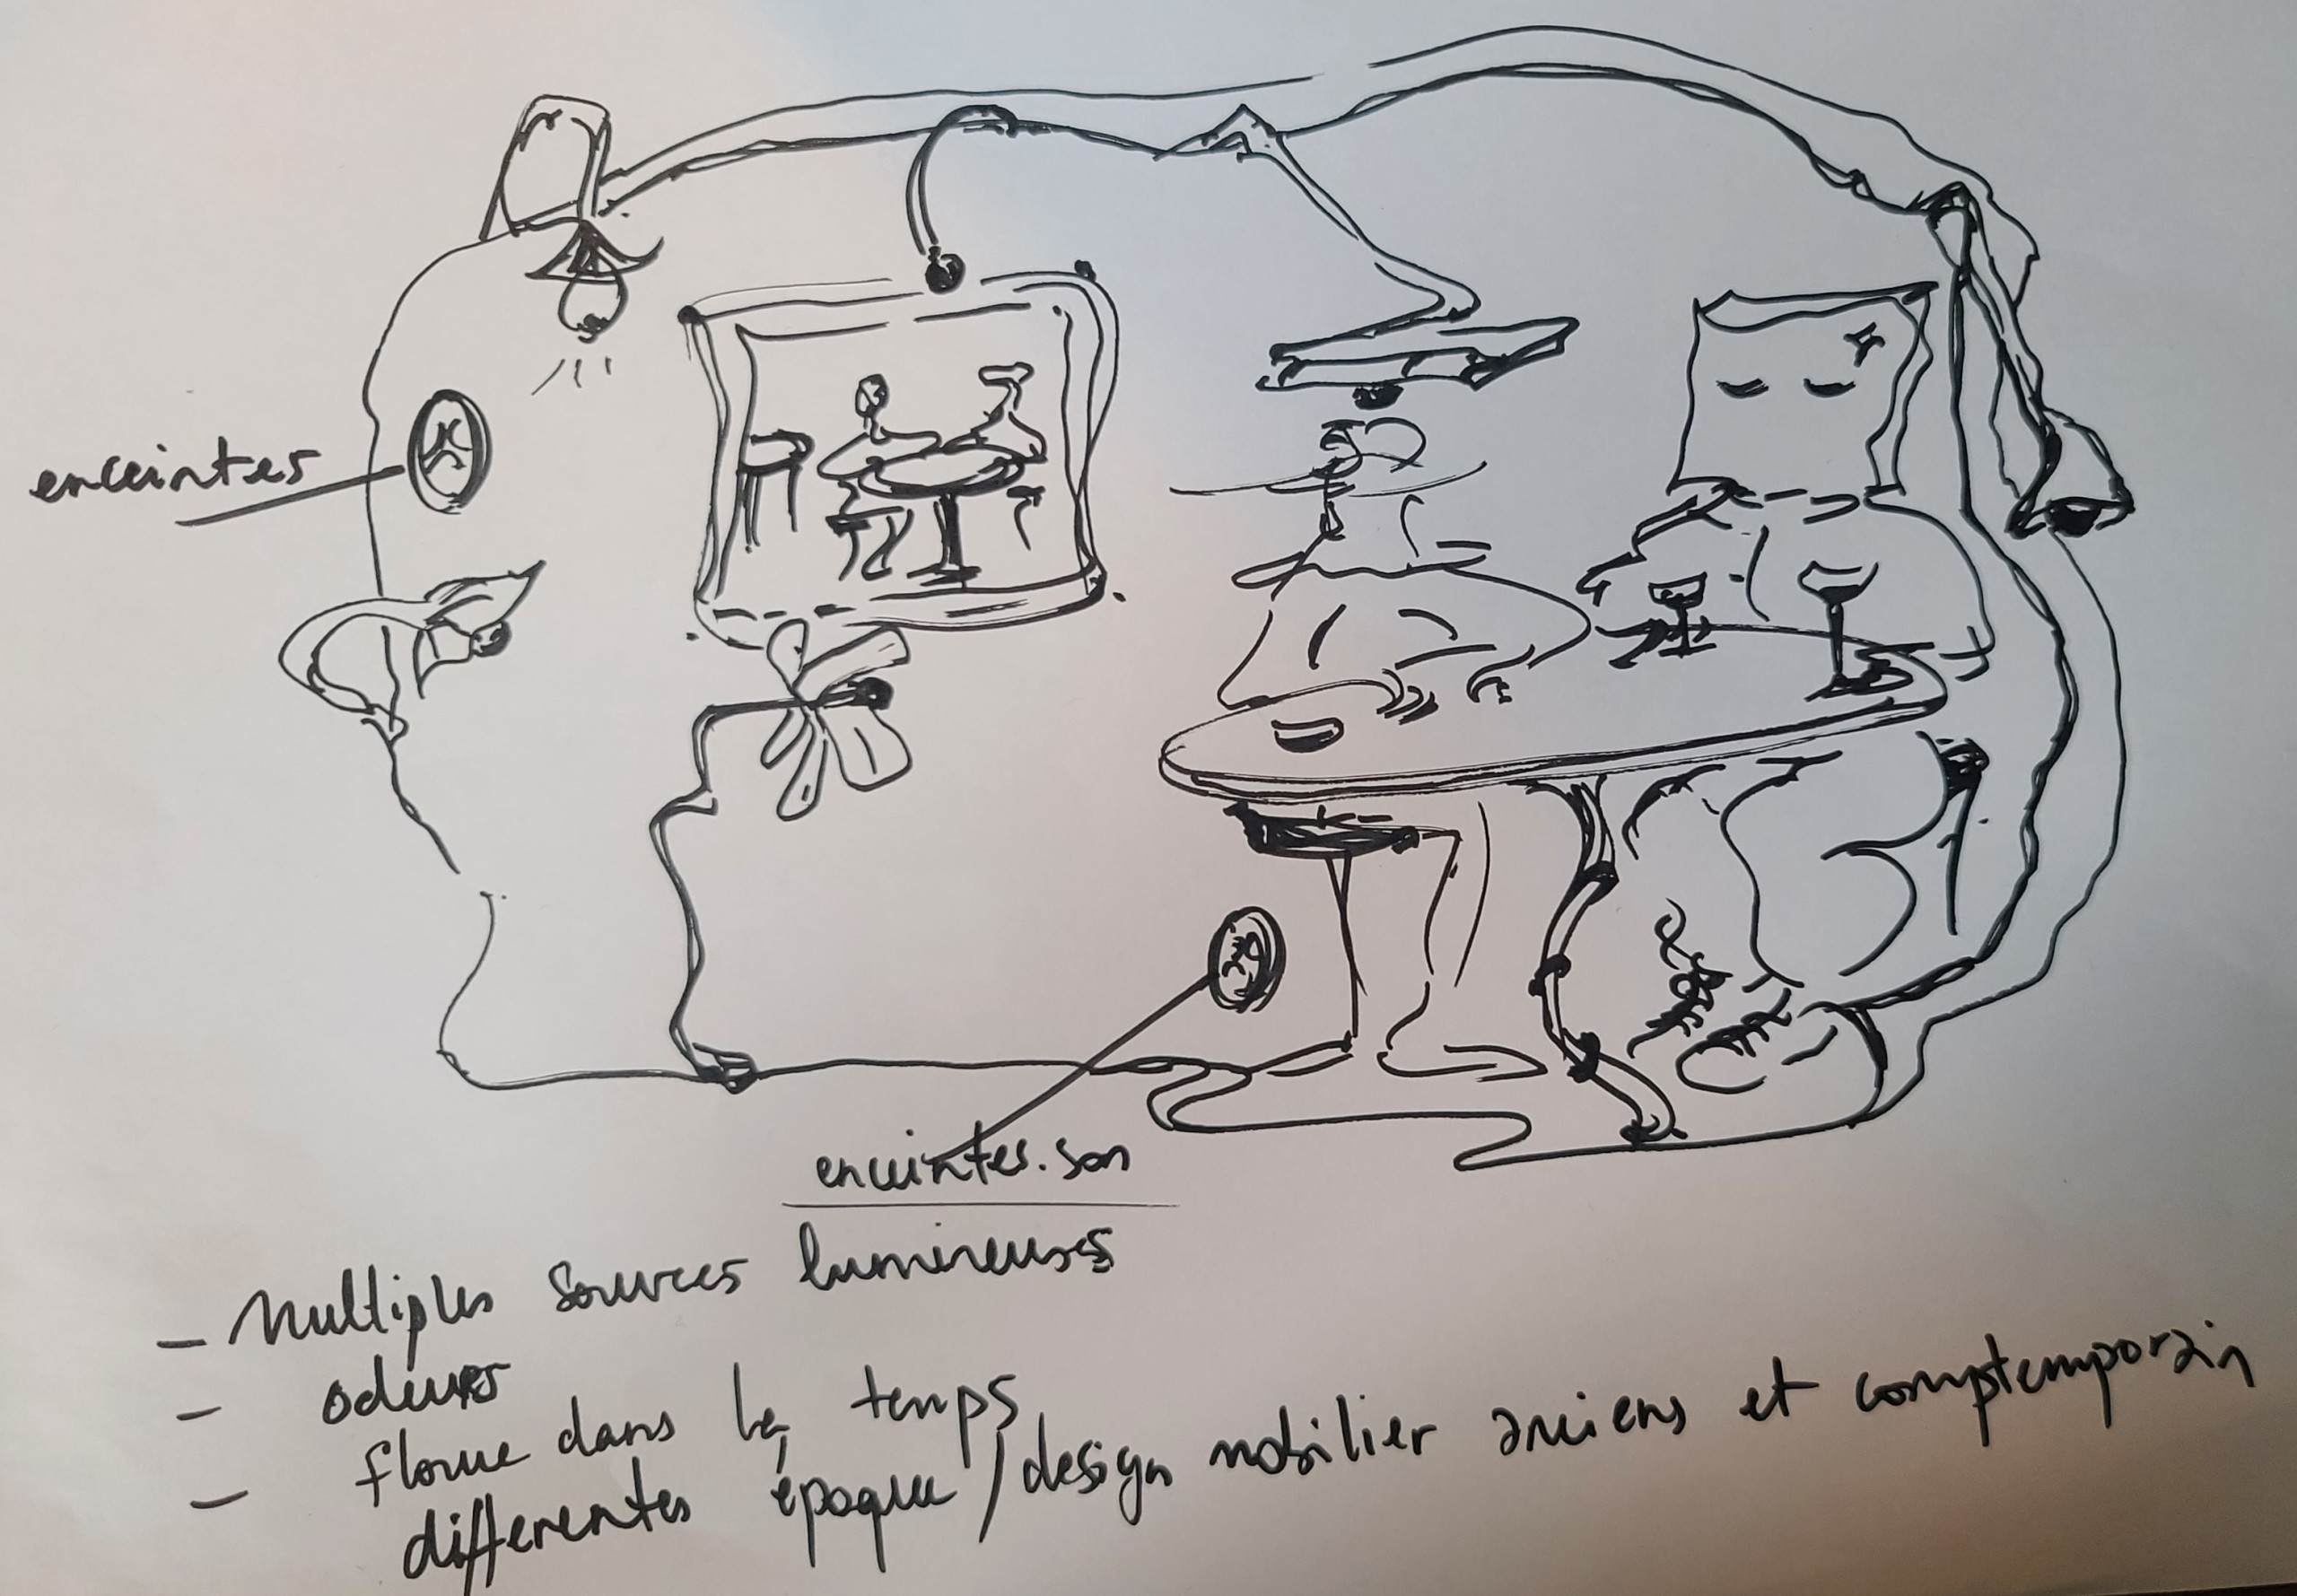 enceintes
enceintes. son
- Multiples sources lumineuses
- odeurs
- floue dans le temps
differentes époque / design mobilier anciens et comptemporain